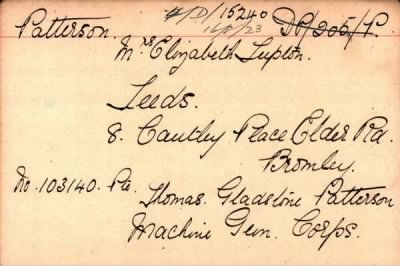 4/D/15240
16/8/23
DP/205/P.
Patterson.
Mrs Elizabeth Lupton.
Leeds.
8. Cautley Place Elder Rd.
Bromley.
No. 103140. Pte.
Thomas. Gladstone Patterson
Machine Gun. Corps.